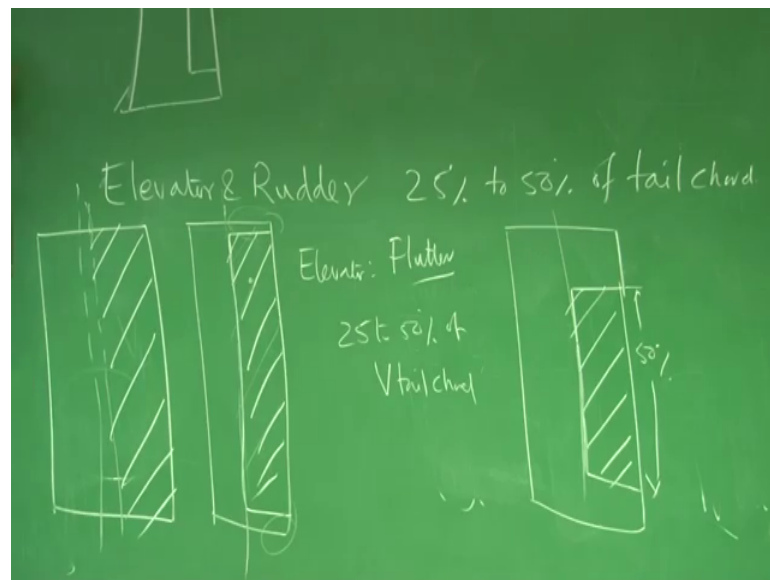 Elevator & Rudder 25% to 50% of tail chord
Elevator: Flutter
25 to 50% of
V tail chord
50%